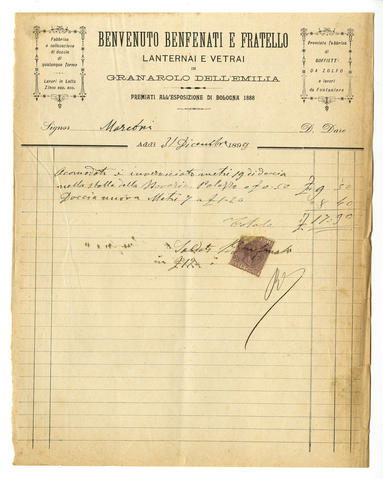 Fabbrica
e collocazione
di doccie
di
qualunque forma
Lavori in Latta
Zinco ecc. ecc.
BENVENUTO BENFENATI E FRATELLO
LANTERNAI E VETRAI
IN
GRANAROLO DELL'EMILIA
PREMIATI ALL'ESPOSIZIONE DI BOLOGNA 1888
Premiata fabbrica
di
SOFFIETTI
DA ZOLFO
e lavori
da Fontaniere
Signor Marconi D. Dare
Addì 31 Dicembre 1899
Acomodati è inverniciato metri 19 di doccia
nella stalla della Palazzo a £ 0.50 £ 9 50
Doccia nuova Metri 7 a £ 1.20 8 40
Totale £ 17.90
Saldato Benfenati
in £ 17